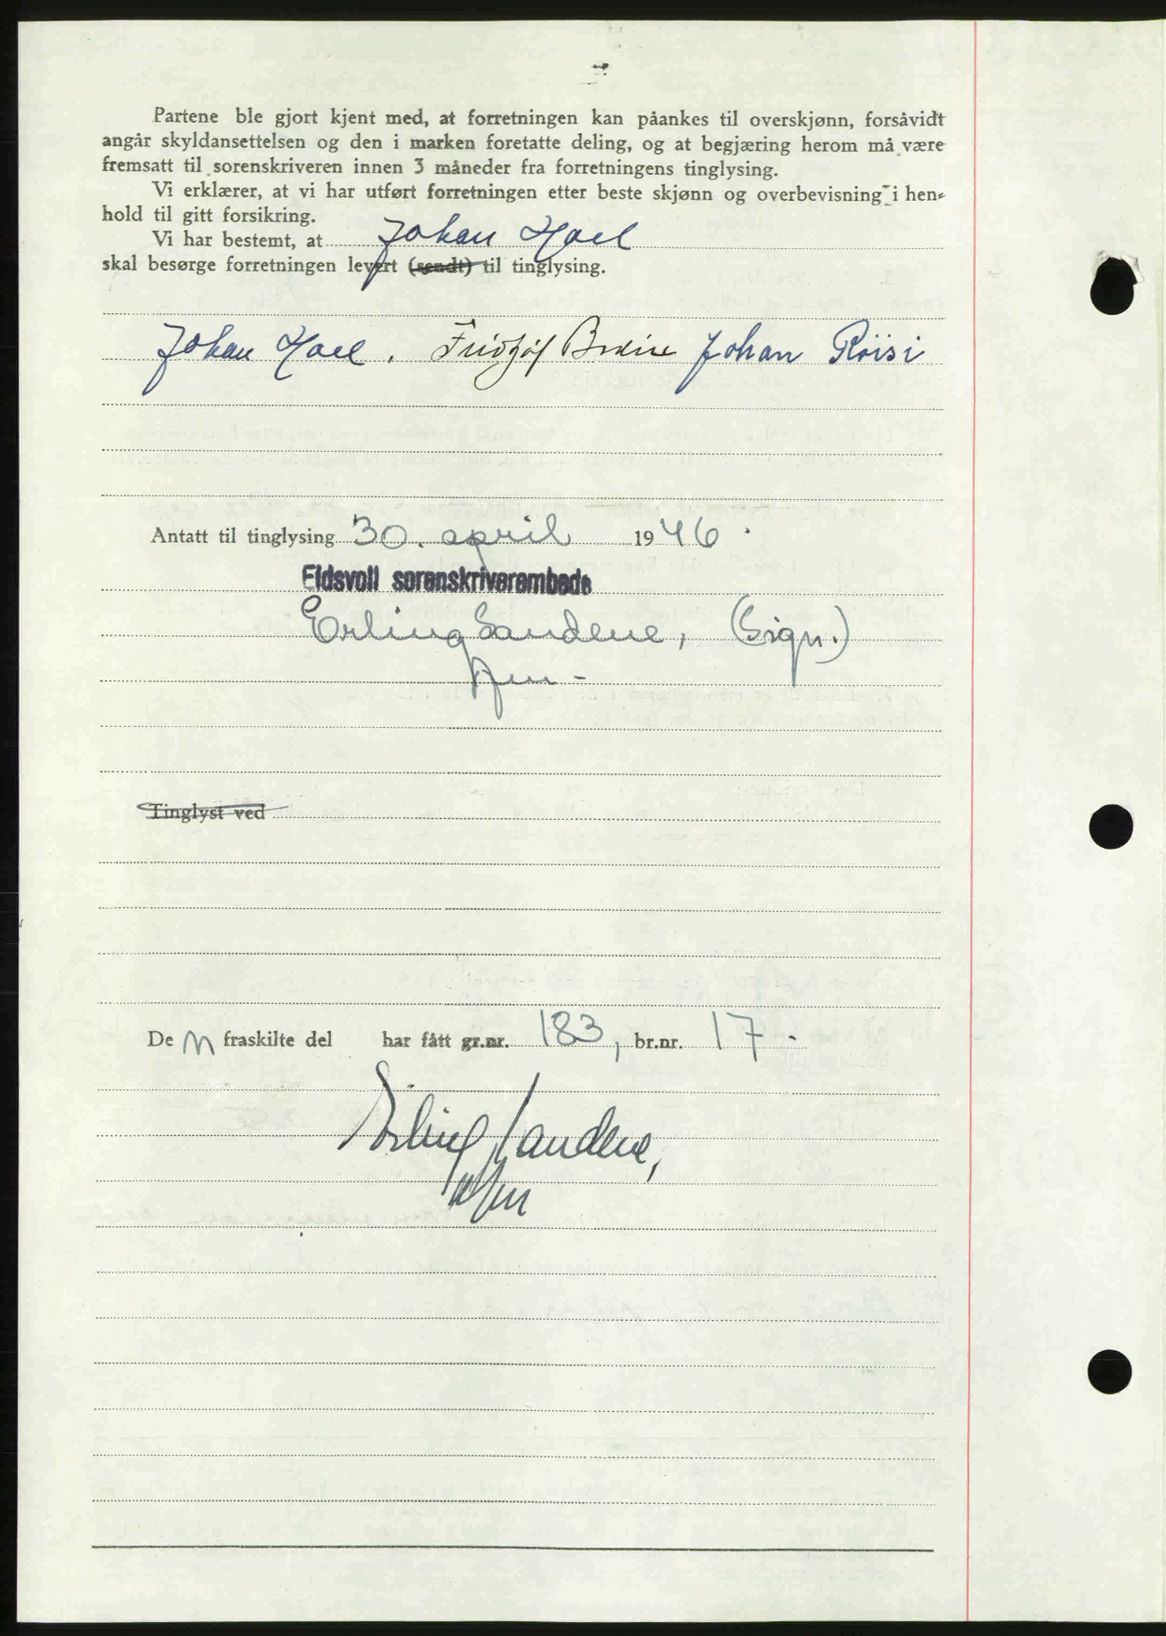 Partene ble gjort kjent med, at forretningen kan påankes til overskjønn, forsåvidt
angår skyldansettelsen og den i marken foretatte deling, og at begjæring herom må være
fremsatt til sorenskriveren innen 3 måneder fra forretningens tinglysing.
Vi erklærer, at vi har utført forretningen etter beste skjønn og overbevisning i hen-
hold til gitt forsikring.
Vi har bestemt, at Johan Hoel
skal besørge forretningen levert (sendt) til tinglysing.
Johan Hoel. Fridtjof Johan Röisi
Antatt til tinglysing 30. april 1946.
Eidsvoll sorenskriverembede
Erling Sandene, (sign.)
Tinglyst ved
Den fraskilte del har fått gr.nr. 183, br.nr. 17.
Erling Sandene,